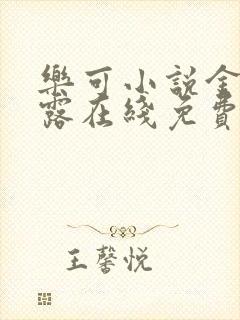 樂可小說金
露在綫免費
王馨悦